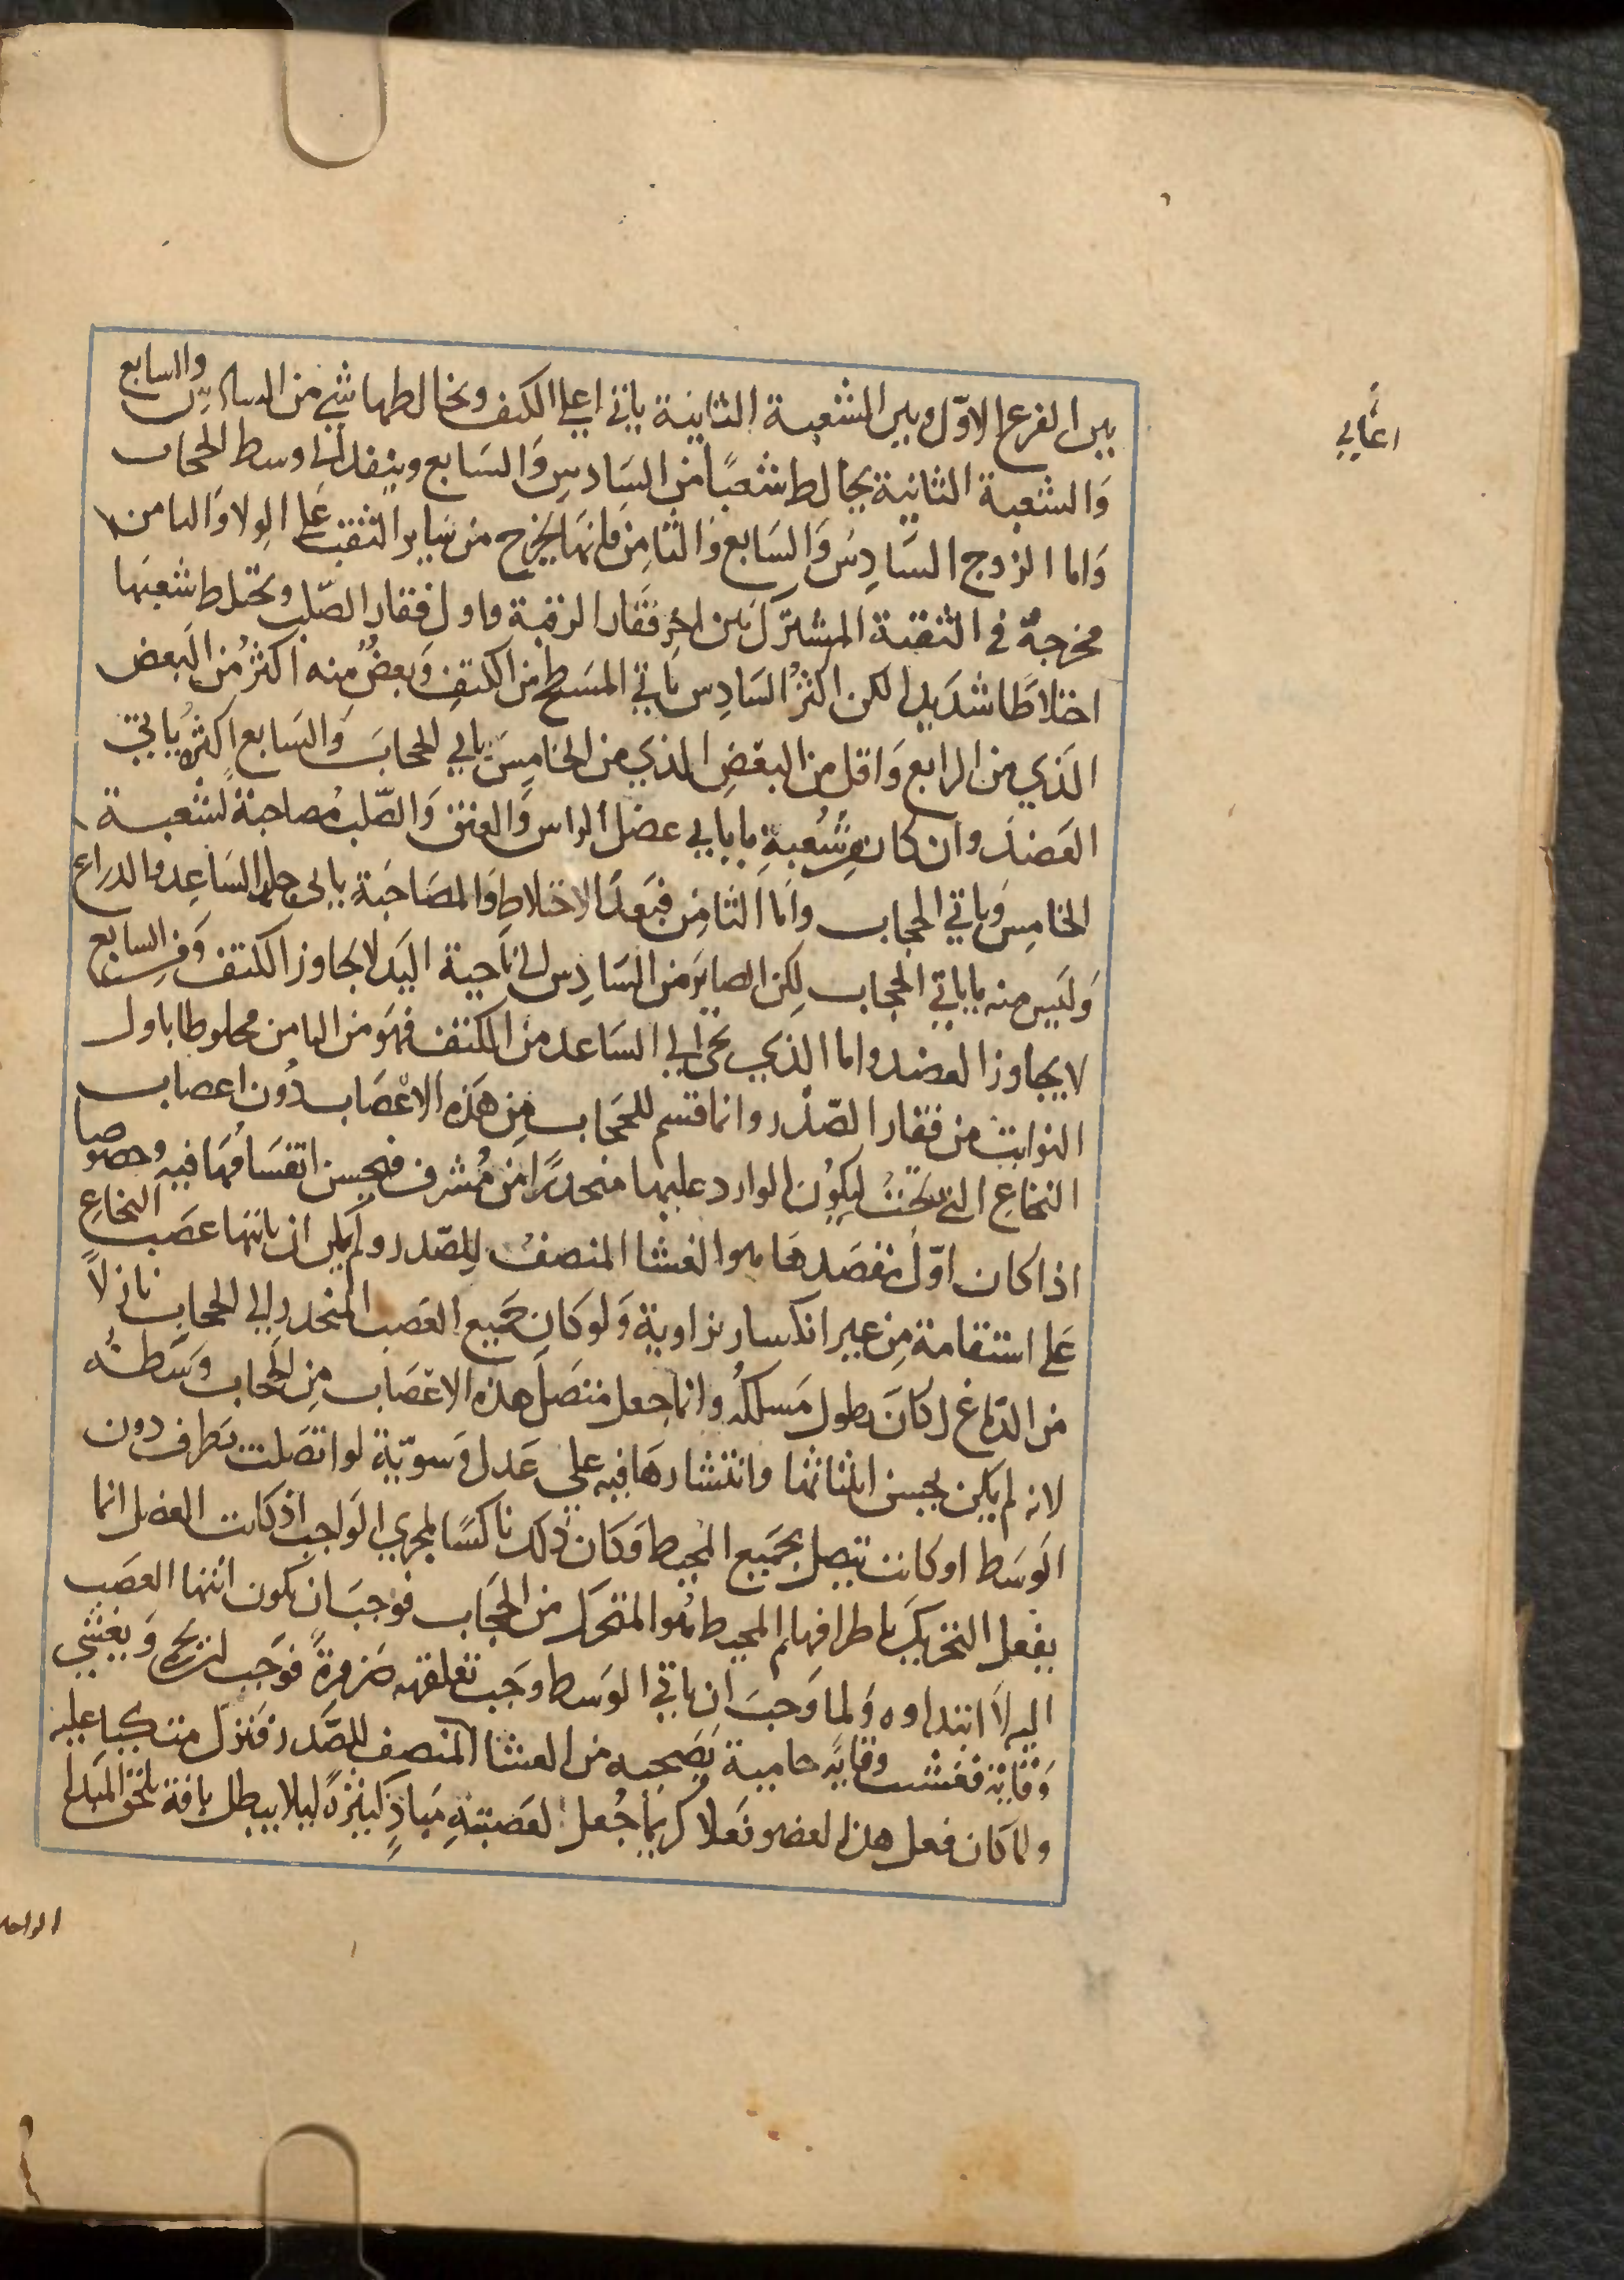 بين الفرع الاوّل وبين الشعبة الثانية ياتي اعلي الكتف ويخالطها شي من السادس والسابع
اعالي
وَالشعبة الثانية يخالط شعبًا من السَادسِ وَالسَابع وينفد الي وسط الحجاب
وَاما الزوج السَّادِسَ وَالسَابع وَالثامِن فانهَا يخرج من سَاير الثقب على الوِلا وَالثامن
مخرجهُ في الثقبة المشتركَ بَين اخِر فقار الرقبة واول فقار الصّلب وتختلط شعبَها
اختلاطًا شديدا لكن اكثرُ السَادِس يَاتي المسَطح من الكتِفِ وَبعضُ منه اكثرُ من البَعض
الذي من الرابع وَاقل من البعضِ الذي من الخامِسَ ياتي الحجابَ وَالسَابع اكثرهُ يَاتي
العَضدَ وان كان من شُعبةِ ما ياتي عضل الراس وَالعنق وَالصّلب مُصاحبة لشعبة
الخامِس وَياتي الحجاب وَاما الثامِن فبَعدَ الاختلاطِ وَالمصَاحَبَةِ ياتي جلد السَاعِد والدراع
وَليس منه ما ياتي الحجاب لكِن الصايرَ من السَادِس الي نَاحية اليَد لا يجاوز الكتف وَمن السابع
لا يجاوز العضد واما الذي يجي الي السَاعد من الكتف فهوَ من الثامن مخلوطا باول
النوابت من فقار الصّدر وانما قسم للحجاب مِن هَذه الاعْصَاب دُون اعصاب
النخاعِ التي تحتُ ليكوُن الوارد عليها منحدرًا من مُشرف فيحسن انقسَامُهَا فيه وخصوصا
اذا كان اوّل مقصَدهَا هو الغشا المنصفُ للصّدر ولم يكن ان ياتيَها عصَب النخاعِ
عَلى استقامة مِن غير انكسار بزاوية وَلو كان جَميع العَصب المنحدر الي الحجاب نازلاً
من الدّماغ لكانَ يطول مَسلكهُ وانما جعل متصَل هذه الاعْصَاب مِن الحجاب وسَطهُ
لانه لم يكن يحسن انبثاثها وانتشارهَا فيه علي عَدل وَسويّة لو اتصَلت بَطرف دون
الوَسط او كانت تتصل بجَميع المحيط وَكان ذلك ناكسًا لمجري الواجب اذ كانت العضل انما
يفعل التحريك باطرافها ثم المحيط هُو المتحرك من الحجَاب فوجبَ ان يكون انتها العصَب
اليه لاَ ابتداوه وَلما وَجبَ ان ياتي الوَسط وجَب تعلقه ضرورةً فوَجب ان يحمي وَيغشي
وَقايَة فغشت وقايَة حامية يصَحبه من الغشا المنصِف للصّدر فنزل متكيا عليه
ولما كان فعل هذا العضو فعلاً كريما جُعل لعَصَبتهِ مبَادٍ كثيرَة ليلا يبطل بافة تلحق المبَدا
الواحد